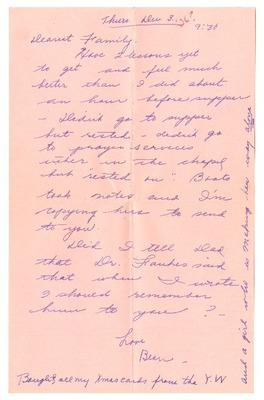 Thurs Dec 3
9:30
Dearest Family.
Have 2 lessons yet
to get and feel much
better than I did about
an hour before supper
- Didnt go to supper
but rested - didnt go
to prayer services
either in the chapel
but "rested on". Boots
took notes and I'm
copying hers to send
to you.
Did I tell Dad
that Dr. Faukes said
that when I wrote
I should remember
him to you? -
Love
Bear
Bought all my Xmas cards from the Y.W
and a girl who is making her way alone